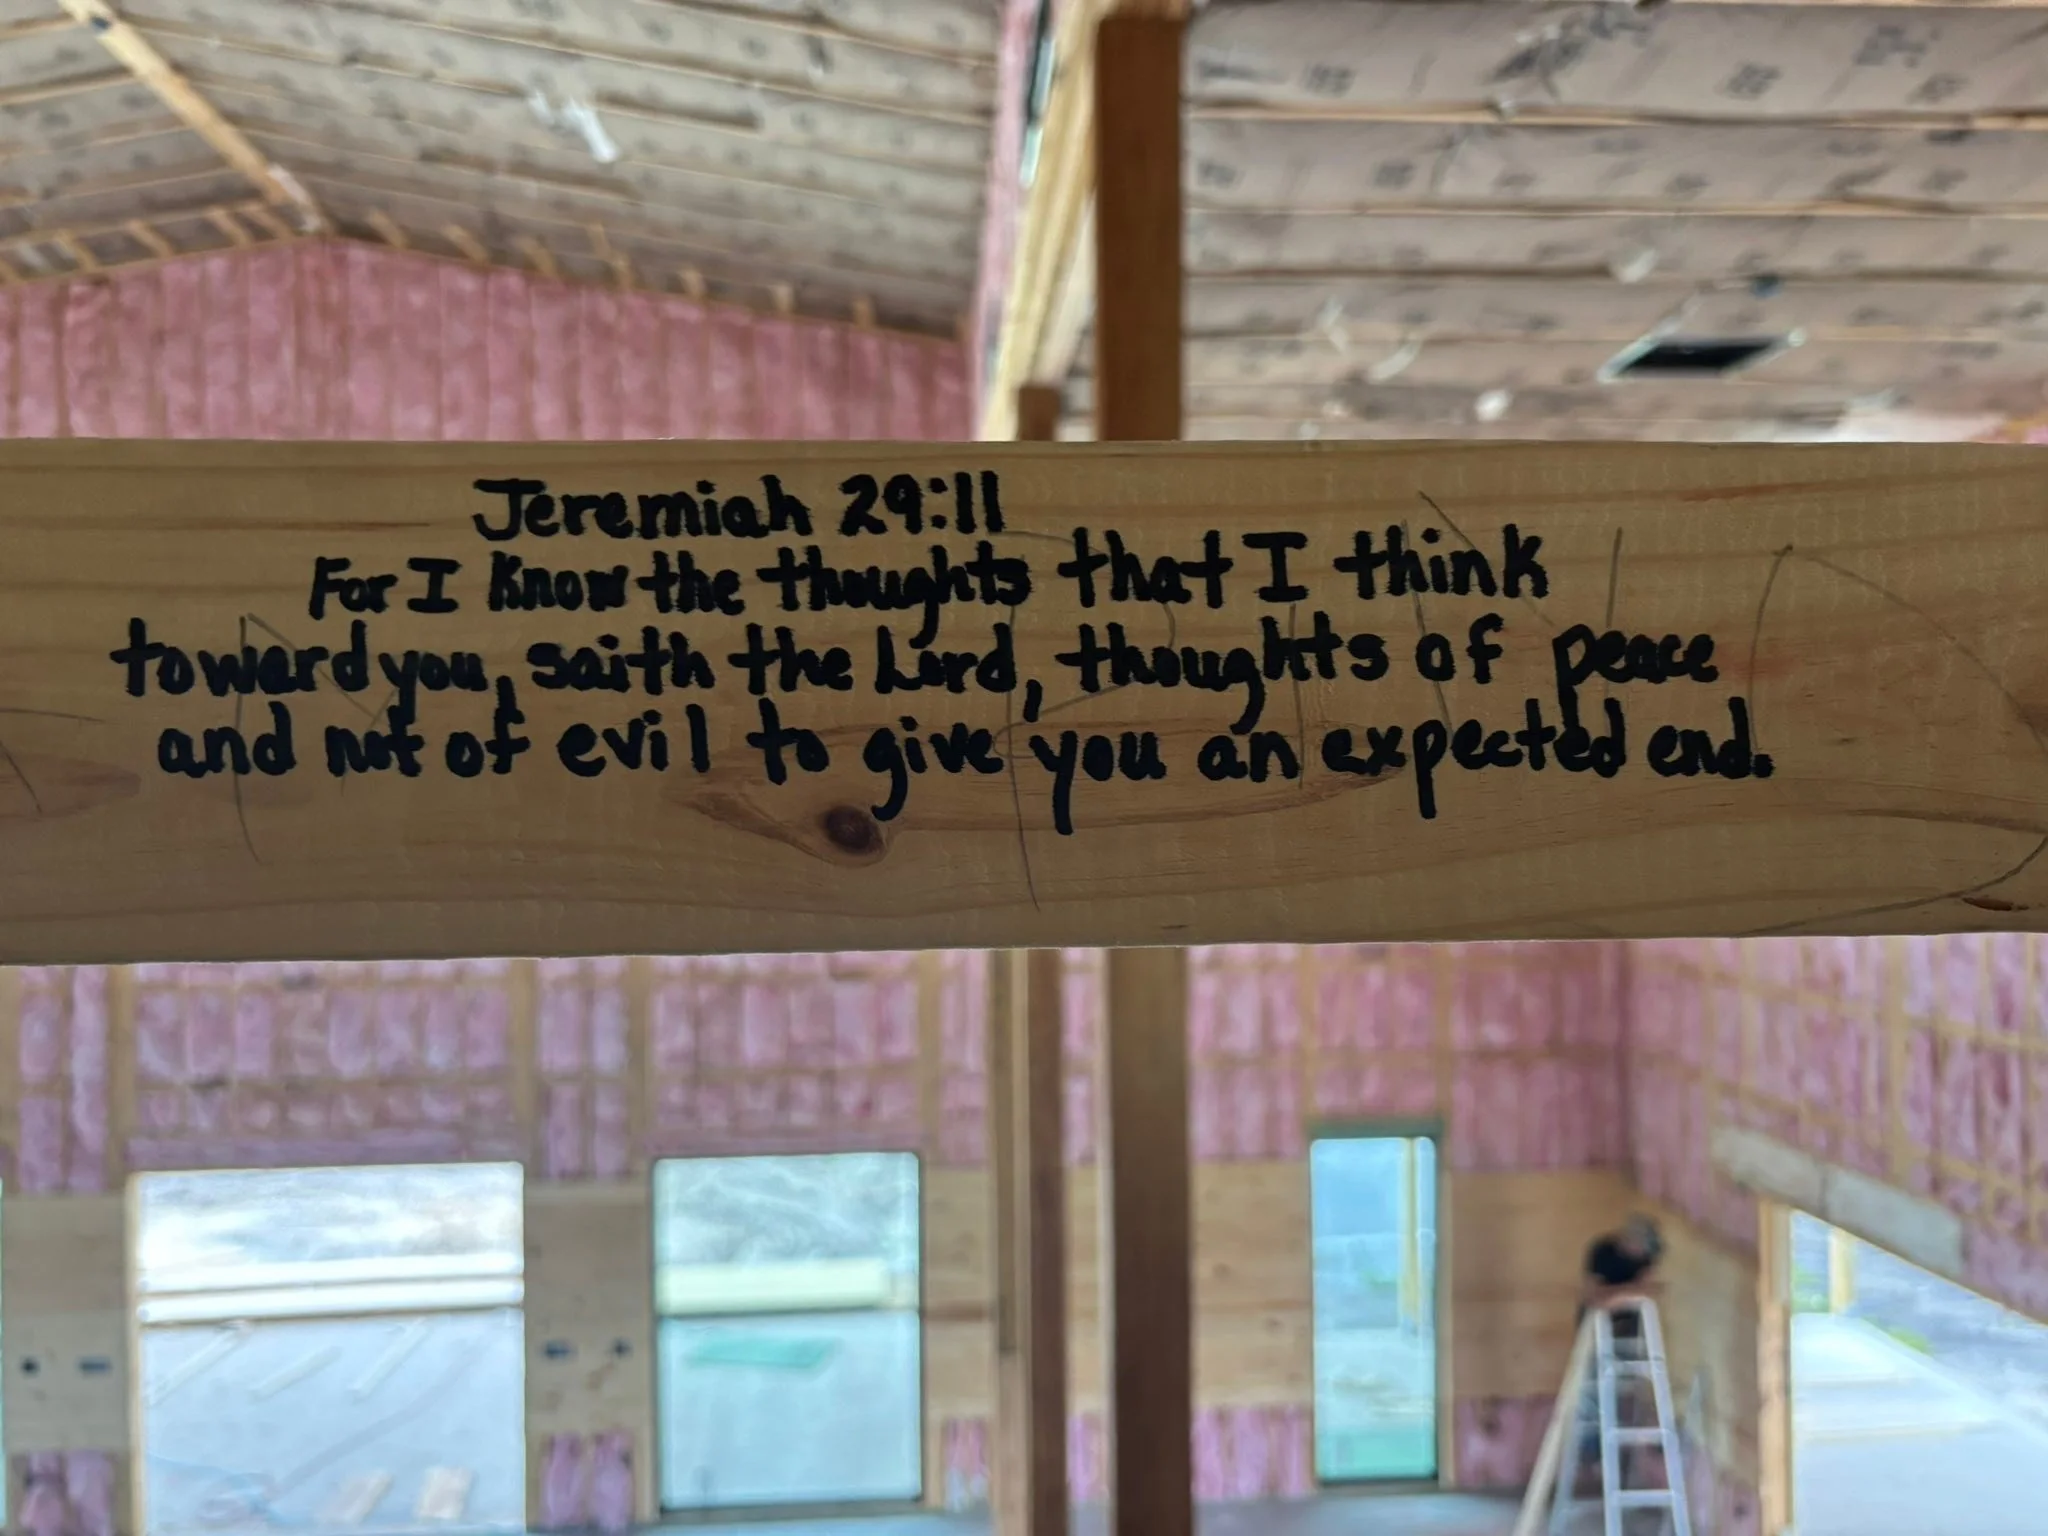 Jeremiah 29:11
For I know the thoughts that I think
toward you, saith the Lord, thoughts of peace
and not of evil to give you an expected end.